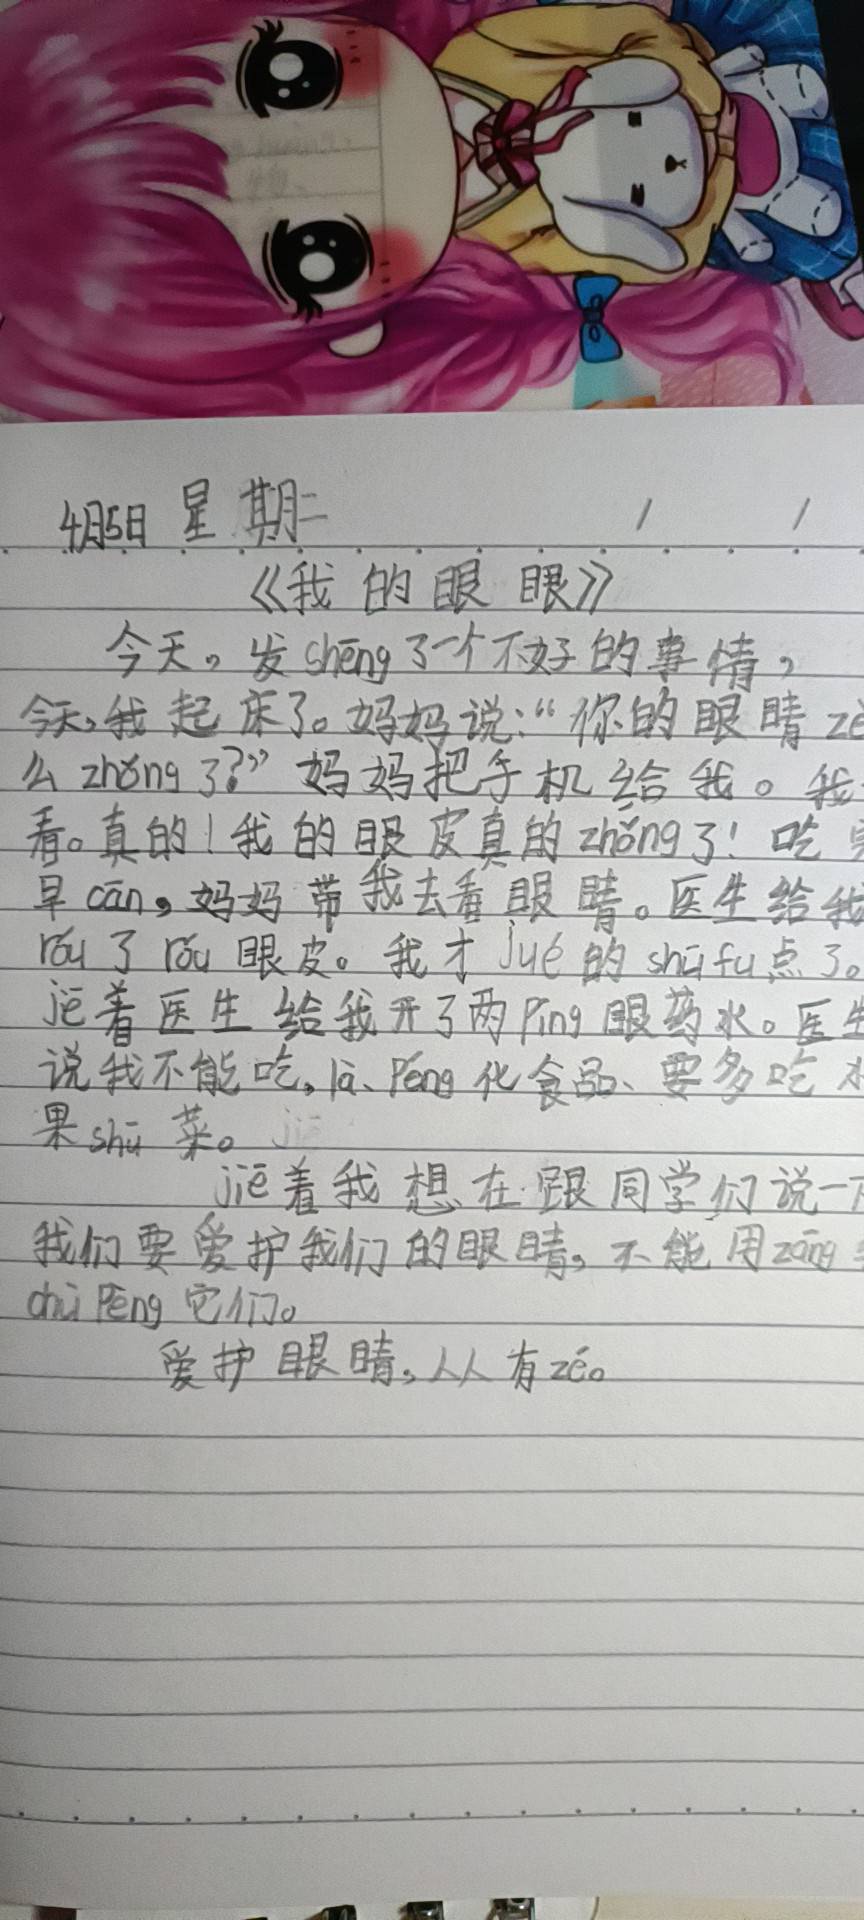 4月5日 星期二
《我的眼眼》
今天。发shēng了一个不好的事情，
今天，我起床了。妈妈说：“你的眼睛zě
么zhǒng了？”妈妈把手机给我。我
看。真的！我的眼皮真的zhǒng了！吃
早cān，妈妈带我去看眼睛。医生给我
róu了róu眼皮。我才jué的shūfu点了。
jiē着医生给我开了两Píng眼药水。医生
说我不能吃，là、Péng化食品、要多吃水
果shū菜。
jiē着我想在跟同学们说一下
我们要爱护我们的眼睛，不能用zāng
chù Pèng它们。
爱护眼睛，人人有zé。